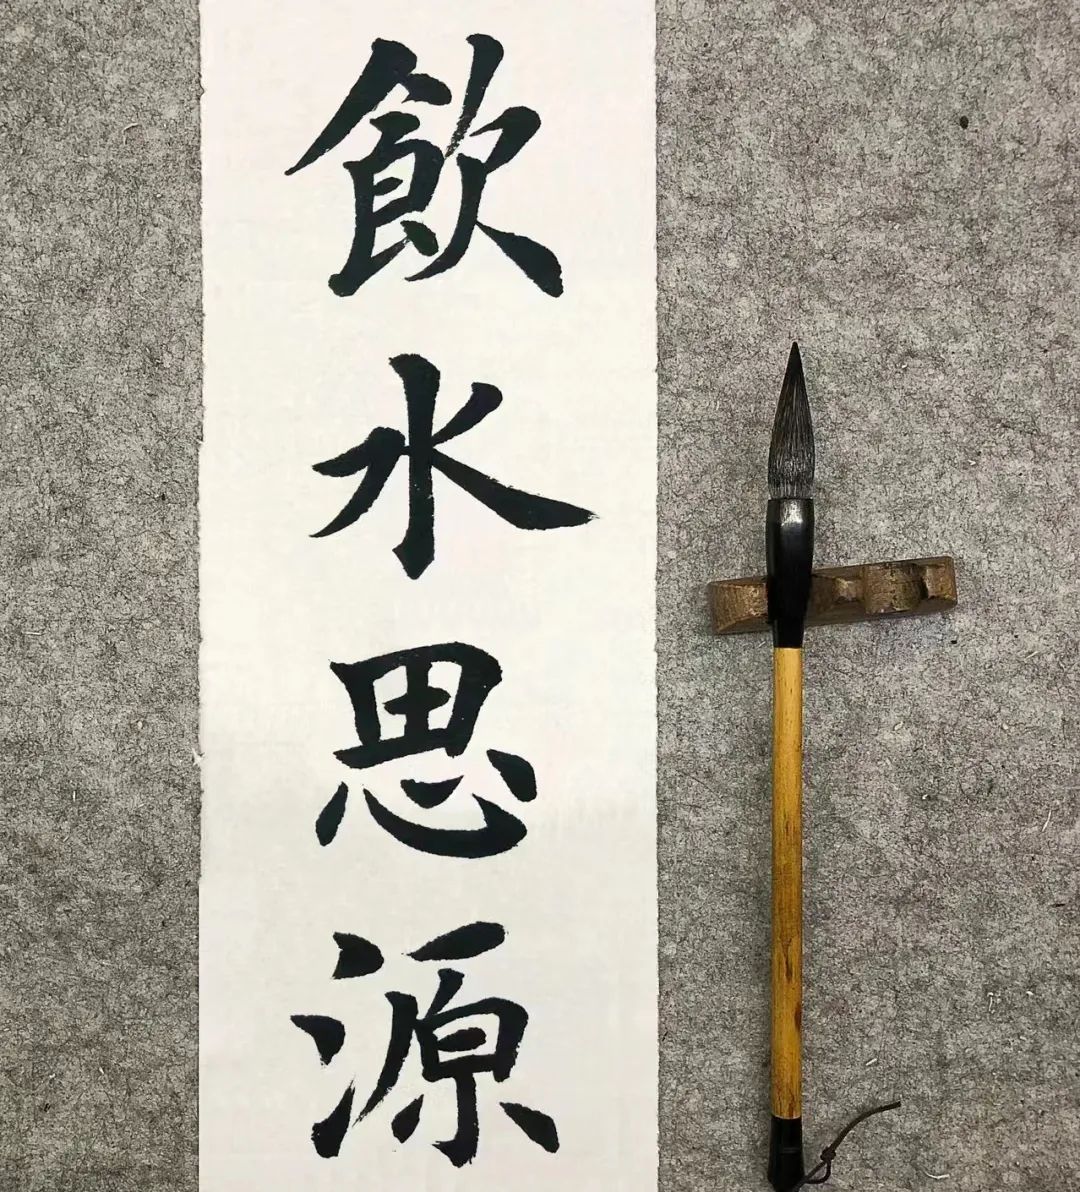 飲水思源